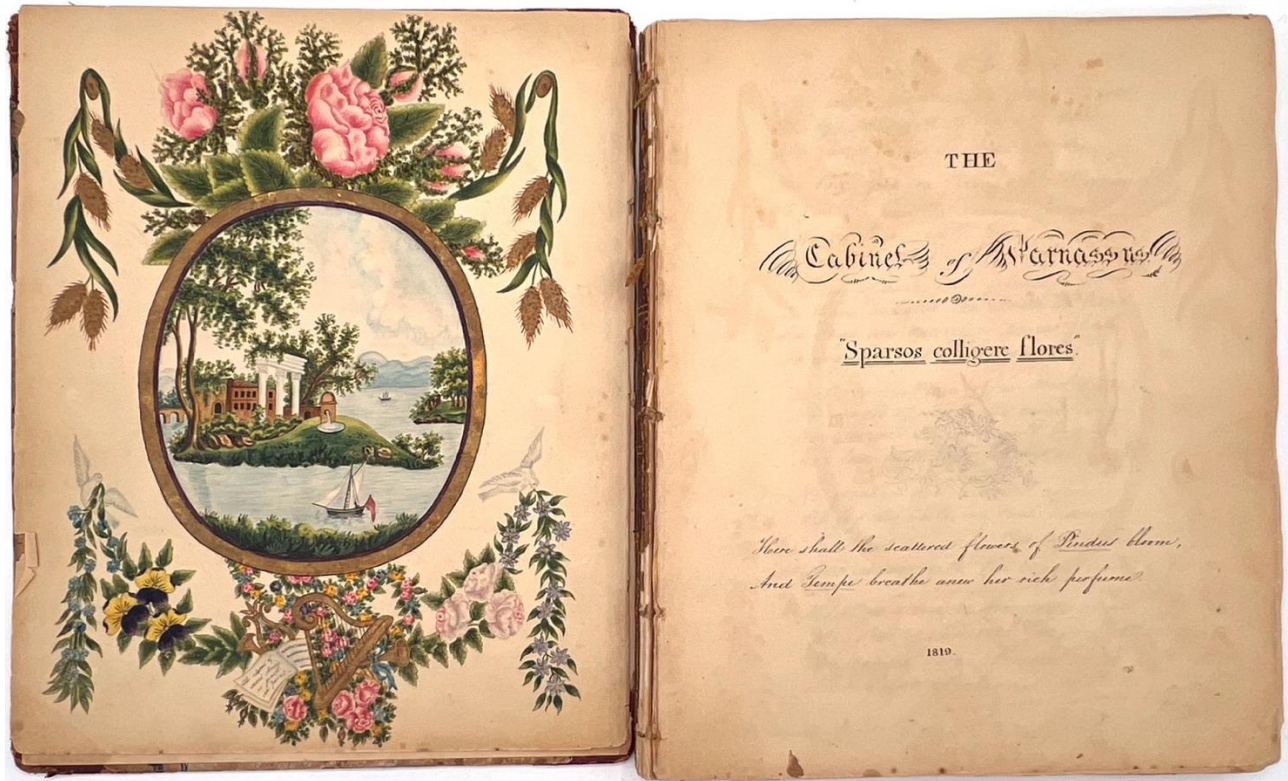 THE
Cabinet of Parnassus.
"Sparsos colligere flores".
Here shall the scattered flowers of Pindus bloom,
And Tempe breathe anew her rich perfume.
1819.